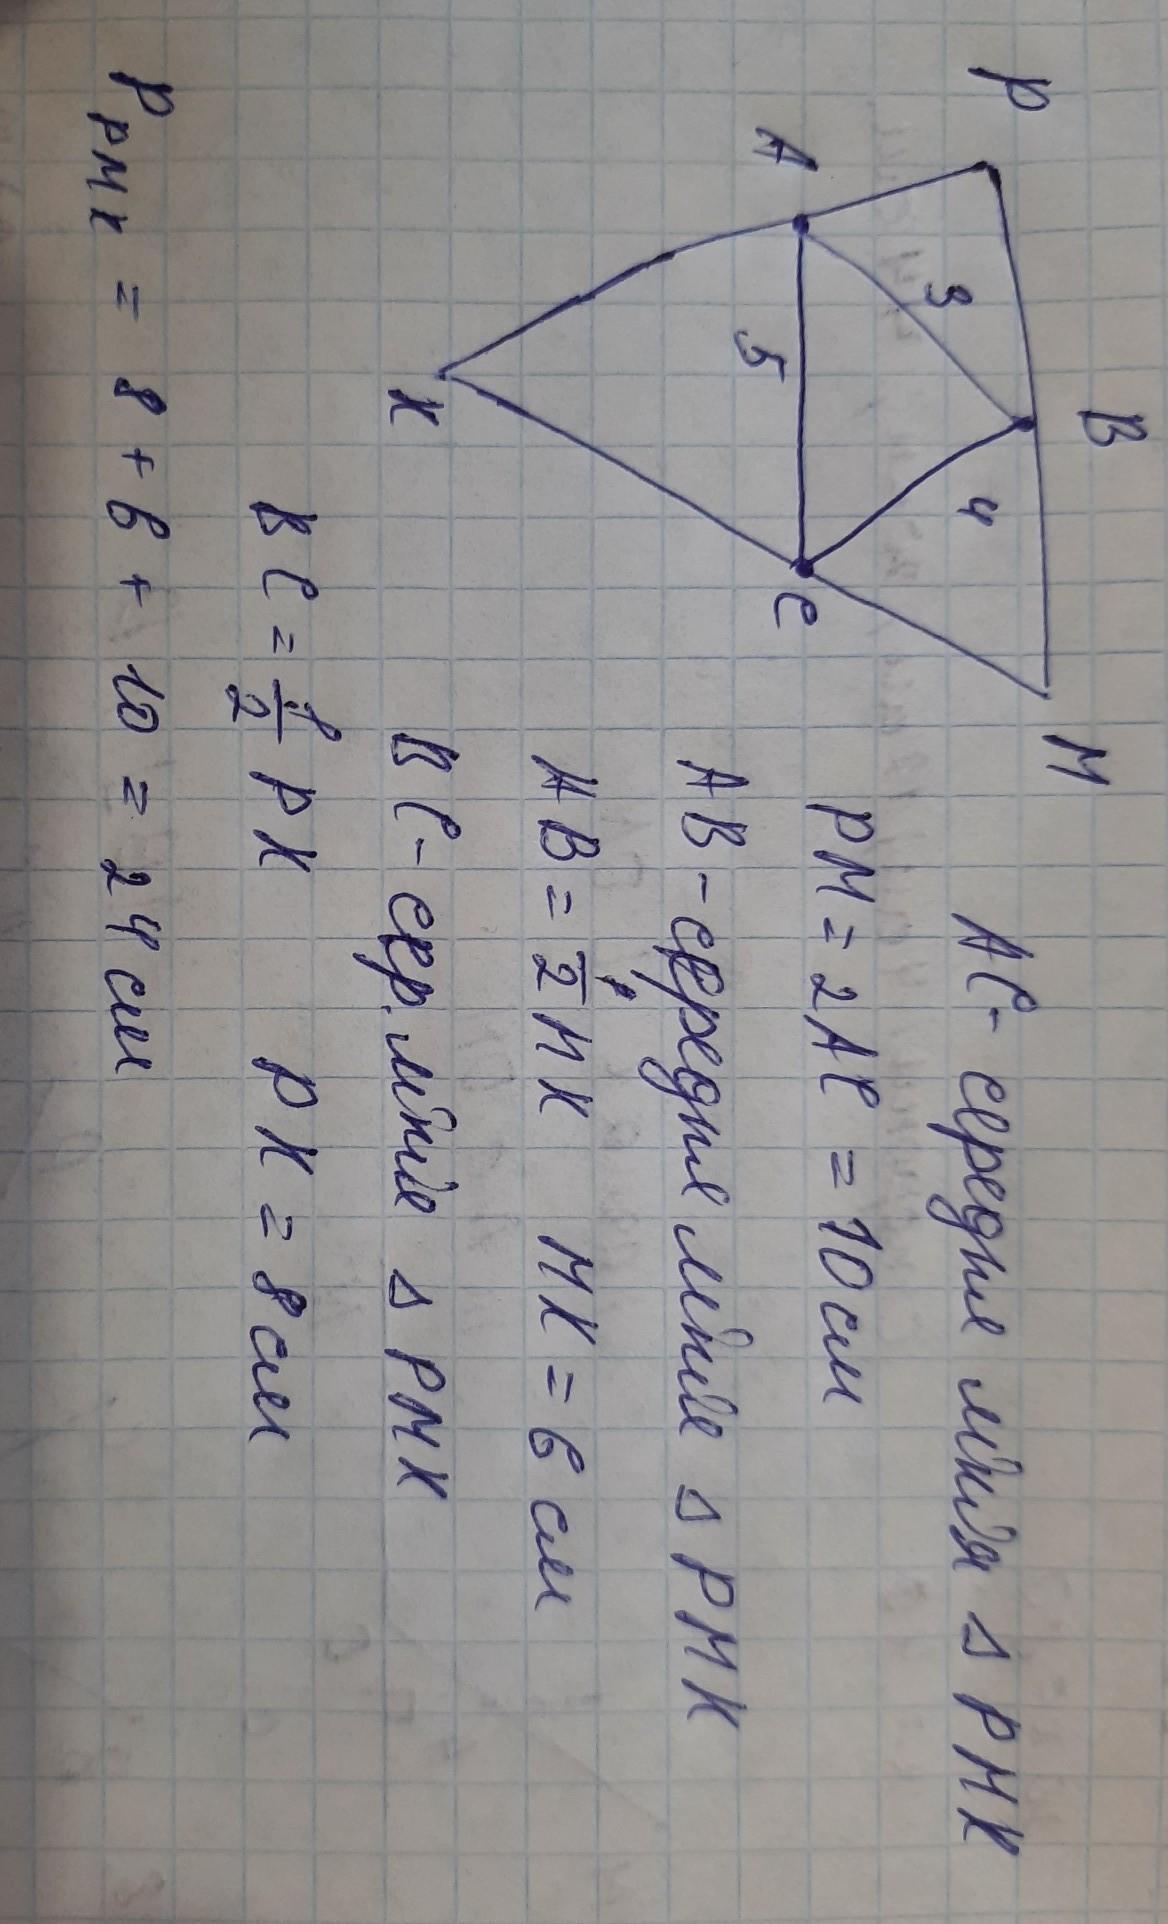 P
B
M
A
3
4
5
C
K
AC - середня лінія △ PMK
PM = 2AC = 10 см
AB - середня лінія △ PMK
AB = 1/2 MK MK = 6 см
BC - сер. лінія △ PMK
BC = 1/2 PK PK = 8 см
P PMK = 8 + 6 + 10 = 24 см